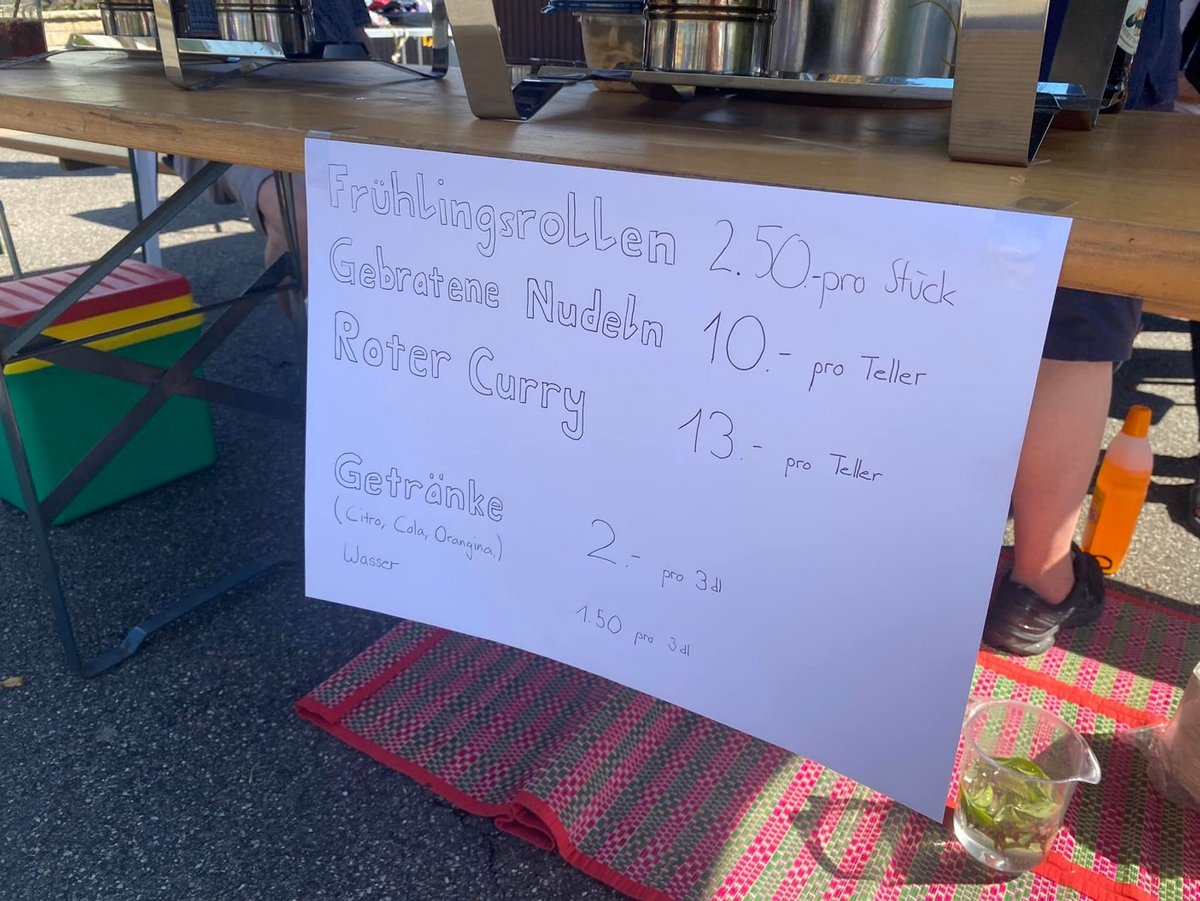 Frühlingsrollen 2.50.-pro Stück
Gebratene Nudeln 10.- pro Teller
Roter Curry 13.- pro Teller
Getränke 2.- pro 3dl
(Citro, Cola, Orangina.)
Wasser 1.50 pro 3dl